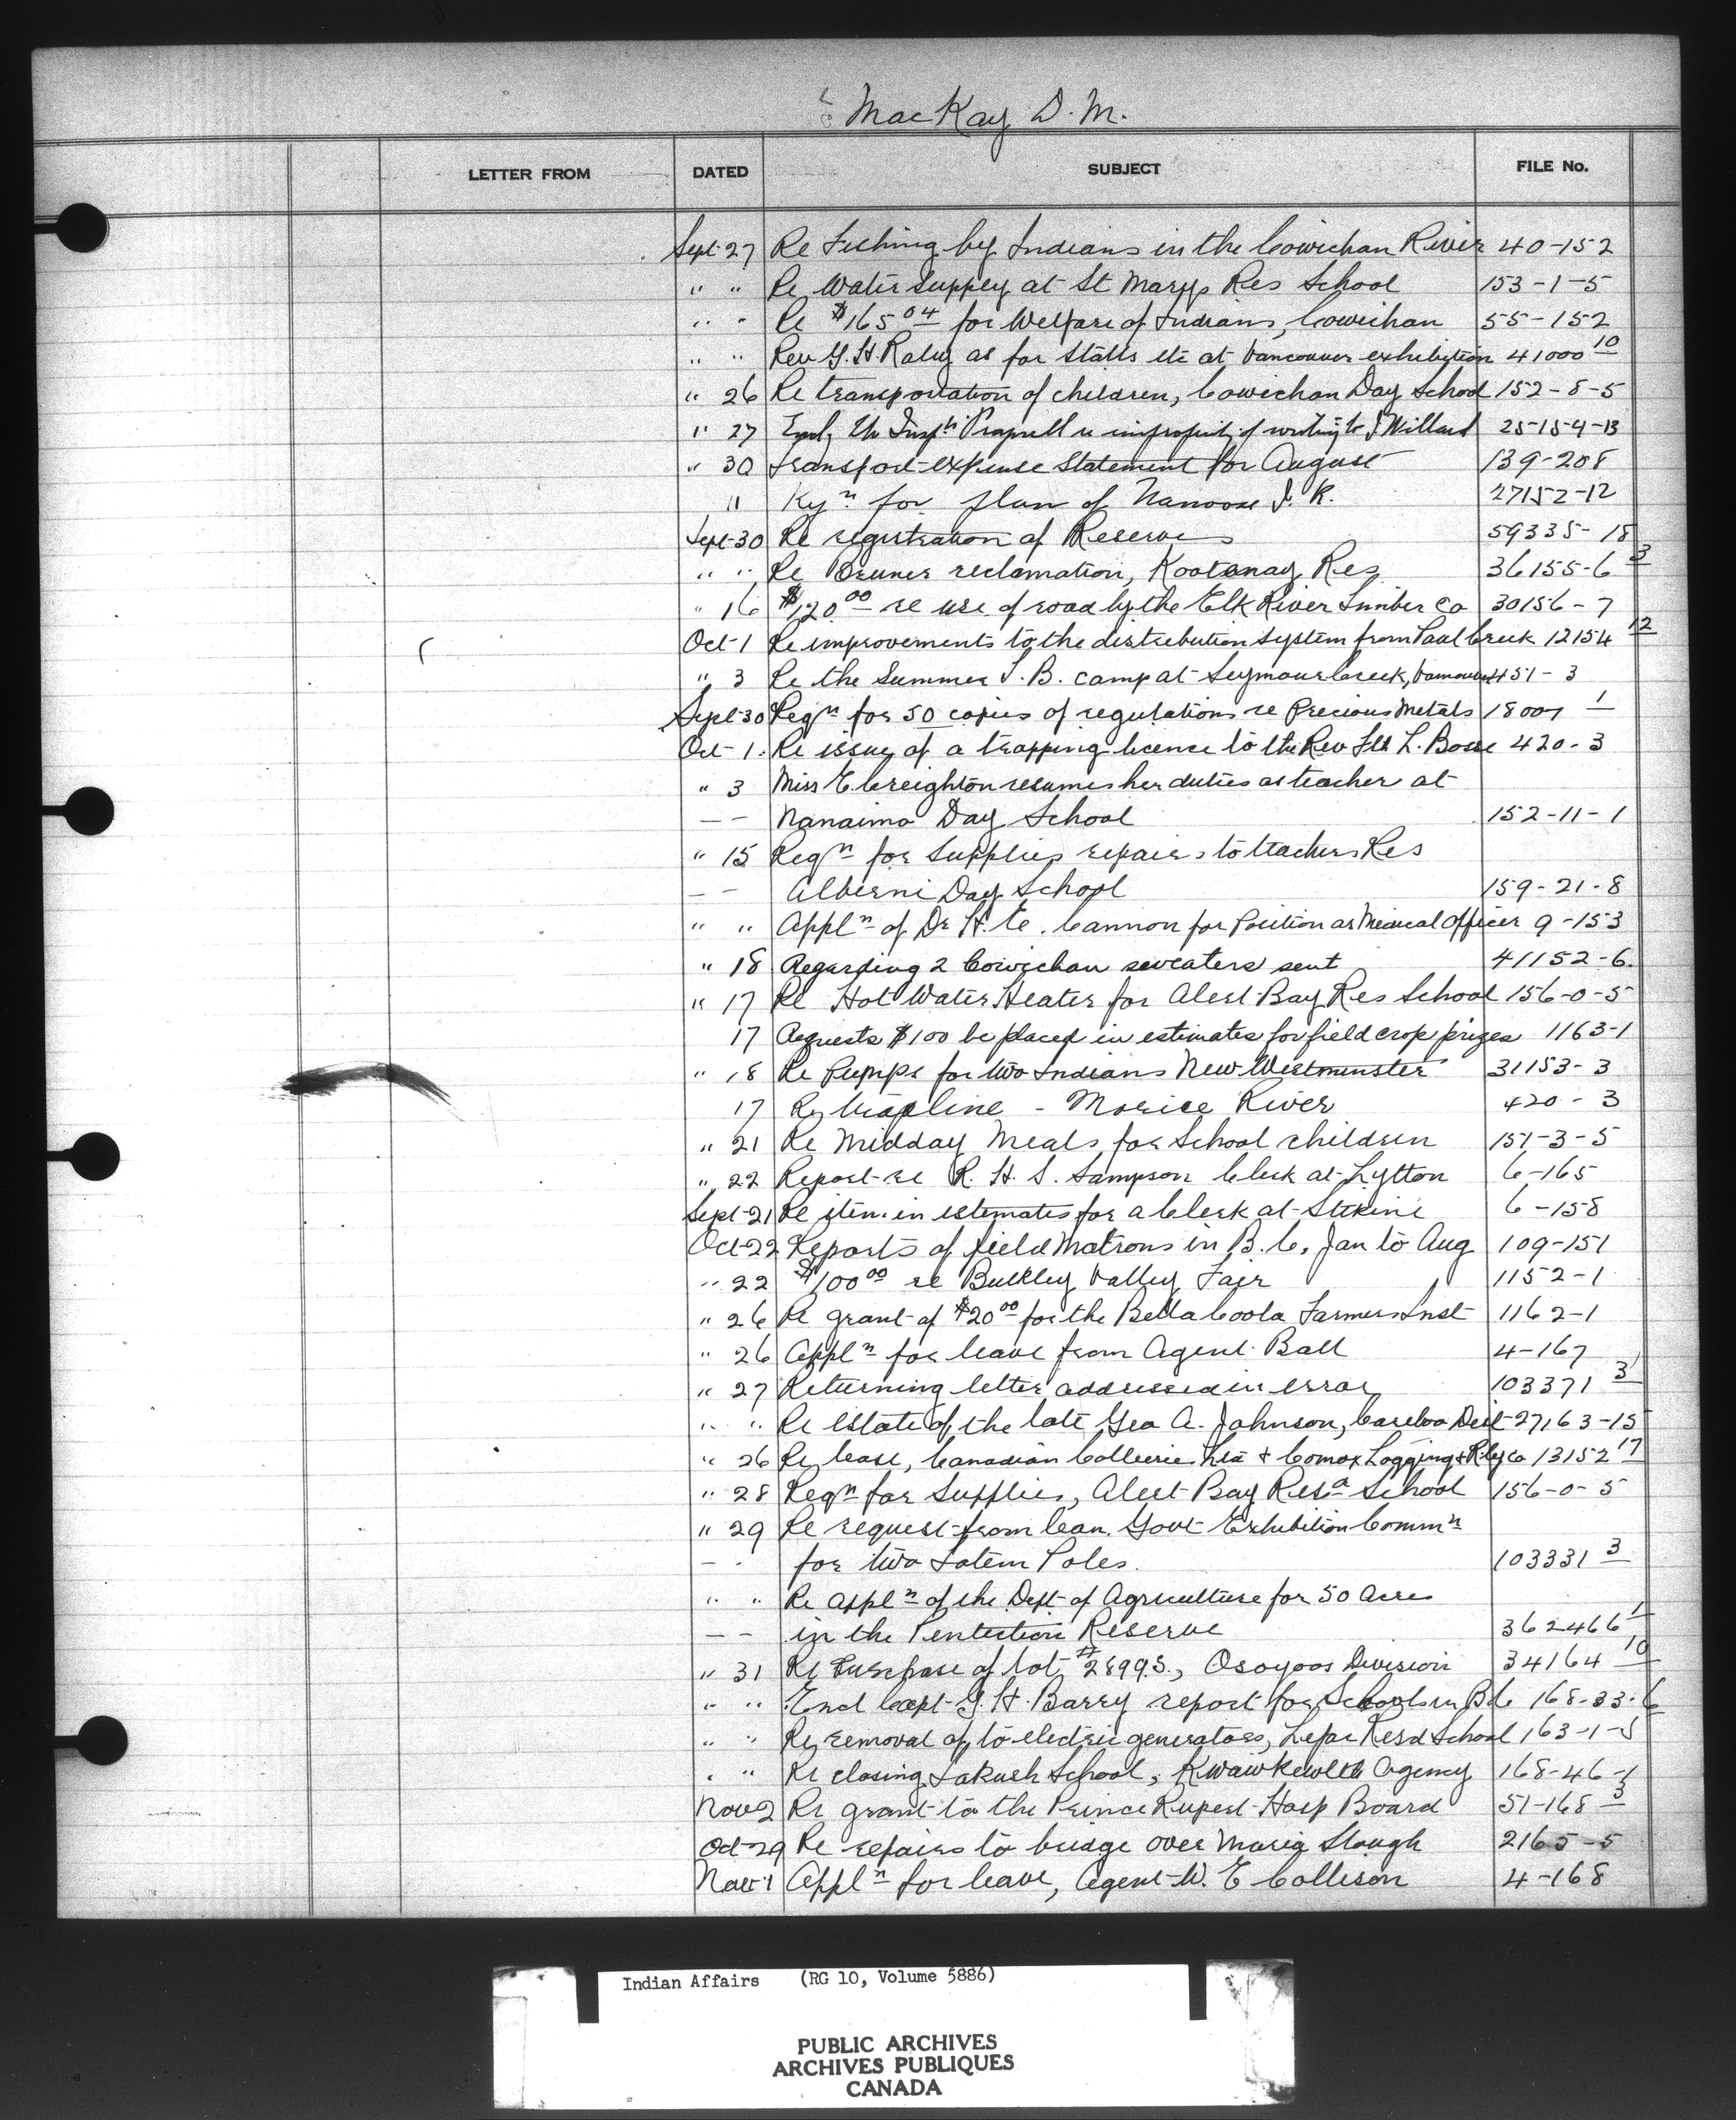 MacKay D. M.
LETTER FROM DATED SUBJECT FILE No.
Sept-27 Re Fishing by Indians in the Cowichan River 40-152
" " Re Water supply at St Marys Res School 153-1-5
" " Re $165 04 for Welfare of Indians, Cowichan 55-152
" " Rev G. H. Raley as for Stalls etc at Vancouver exhibition 41000 10
" 26 Re transportation of children, Cowichan Day School 152-8-5
" 27 re impropriety of writing to J Willard 25-154-13
" 30 Transport expense Statement for August 139-208
" for plan of Nanoose I. R. 27152-12
Sept-30 Re registration of Reserves 59335-18
" " Re reclamation, Kootenay Res 36155-6 3
" 16 $120 00 re use of road by the Elk River Lumber Co 30156-7
Oct-1 Re improvements to the distribution system from Paul Creek 12154 12
" 3 Re the Summer T. B. camp at Seymour Creek, Vancouver 451-3
Sept-30 Reqn for 50 copies of regulations re Precious Metals 18007 1
Oct-1. Re issue of a trapping licence to the Rev L. Bosse 420-3
" 3 Miss E. Creighton resumes her duties as teacher at
-- Nanaimo Day School 152-11-1
" 15 Reqn for Supplies repairs to teachers Res
-- Alberni Day School 159-21-8
" " Appln of Dr H. E. Cannon for Position as Medical Officer 9-153
" 18 Regarding 2 Cowichan sweaters sent 41152-6.
" 17 Re Hot Water Heater for Alert Bay Res School 156-0-5
17 Requests $100 be placed in estimates for field crop prizes 1163-1
" 18 Re Pumps for two Indians New Westminster 31153-3
17 Re trapline - Morice River 420-3
" 21 Re Midday Meals for School children 151-3-5
" 22 Report re R. H. S. Sampson Clerk at Lytton 6-165
Sept-21 Re item in estimates for a Clerk at Stikine 6-158
Oct-22 Reports of field Matrons in B. C. Jan to Aug 109-151
" 22 $100 00 re Bulkley Valley Fair 1152-1
" 26 Re grant of $20 00 for the Bella Coola Farmers Inst 1162-1
" 26 Appln for leave from Agent Ball 4-167
" 27 Returning letter addressed in error 103371 3
" " Re Estate of the late Geo A. Johnson, Cariboo Dist 27163-15
" 26 Re lease, Canadian Collieries Ltd & Comox Logging & Rly Co 13152 17
" 28 Reqn for Supplies, Alert Bay Res School 156-0-5
" 29 Re request from Can. Govt Exhibition Commn
-- for two Totem Poles. 103331 3
" " Re appln of the Dept of Agriculture for 50 Acres
-- in the Penticton Reserve 362466 1
" 31 Re Purchase of lot #2899S., Osoyoos Division 34164 10
" " Encl Capt G. H. Barry report for Schools in B C 168-33-6
" " Re removal of to electric generators, Lejac Resd School 163-1-5
" " Re closing Takush School, Kwawkewlth Agency 168-46-1
Nov 2 Re grant to the Prince Rupert Hosp Board 51-168 3
Oct-29 Re repairs to bridge over Maria Slough 2165-5
Nov-1 Appln for leave, Agent W. E Collison 4-168
Indian Affairs (RG 10, Volume 5886)
PUBLIC ARCHIVES
ARCHIVES PUBLIQUES
CANADA